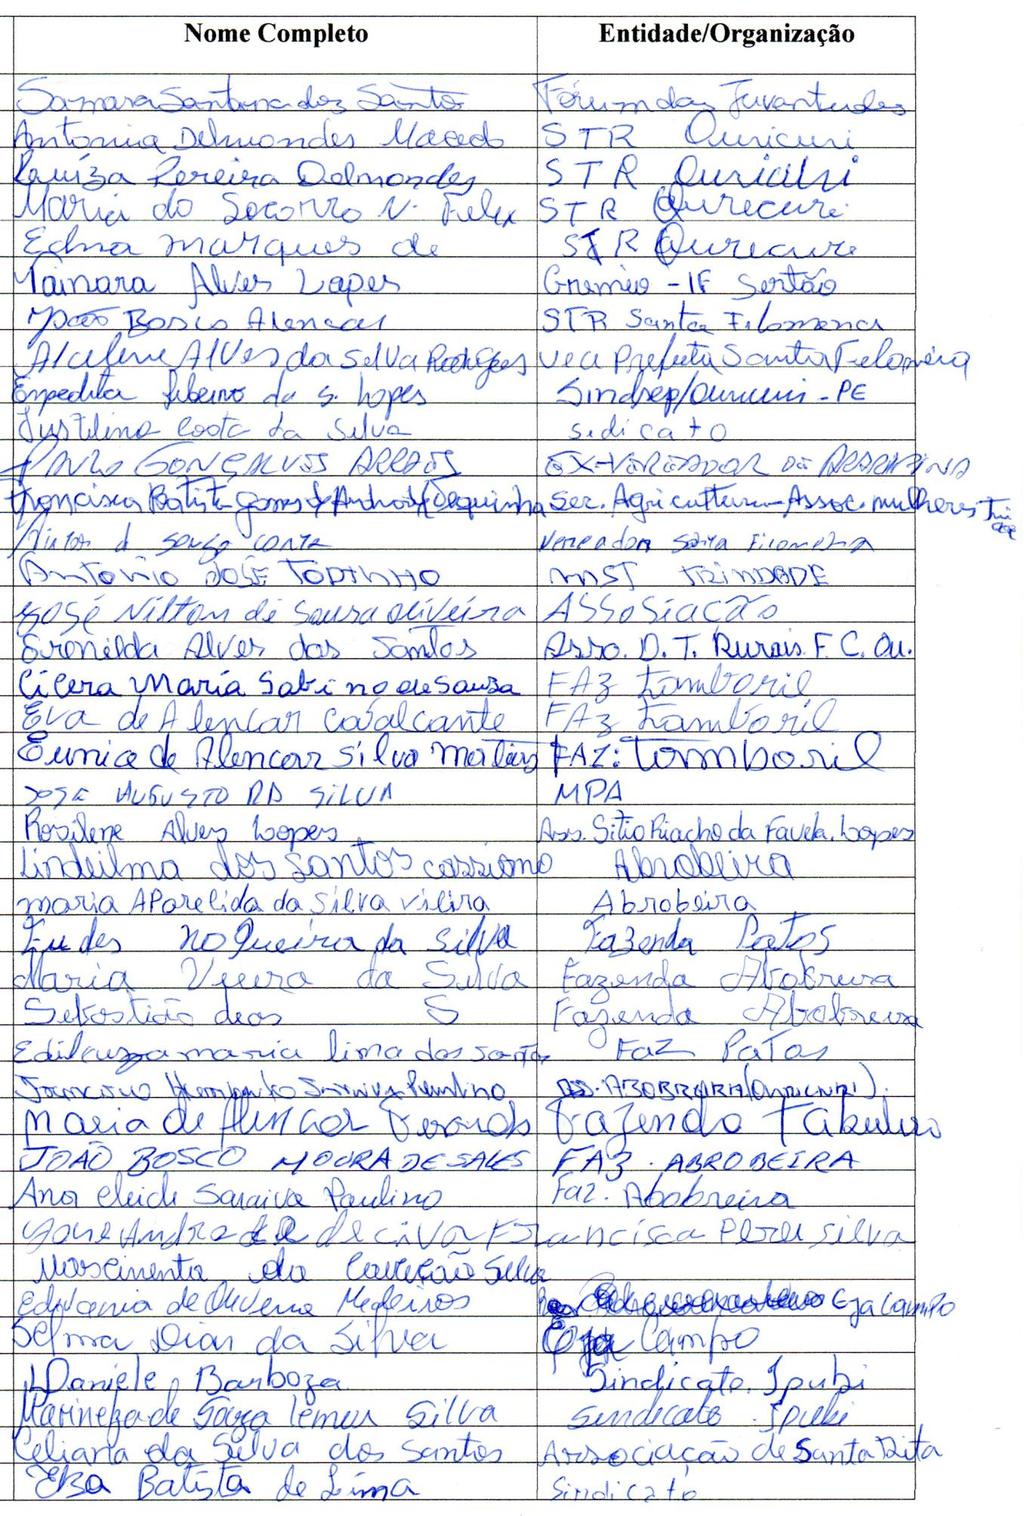 Nome Completo Entidade/Organização
Samara Santana dos Santos Fórum das Juventudes
Antonia Delmondes Macedo STR Ouricuri
Pereira Delmondes STR Ouricuri
Maria do Socorro N. Felix STR Ourecuri
Edna Marques de STR Ourecure
Tainara Alves Lopes Gremio - IF Sertão
João Bosco Alencar STR Santa Filomena
Alves da Silva Rodrigues Santa Filomena
Expedita Ribeiro da S. Lopes Sindsep/Ouricuri - PE
Costa da Silva sidicato
Paulo Gonçalves EX-VEREADOR DE ARARIPINA
Francisca Batista Gomes de Andrade Sec. Agricultura - Assoc. mulheres
de Souza Vereador Santa Filomena
Antonio José TODINHO MST TRINDADE
José Nilton de Sousa oliveira ASSosiação
Alves dos Santos Asso. D. T. Rurais F. C. Ou.
Cicera Maria Sabino de Sousa FAZ Tamboril
Eva de Alencar Cavalcante FAZ Tamboril
Eunice de Alencar Silva Matias FAZ: Tamboril
JOSÉ AUGUSTO DA SILVA MPA
Rosilene Alves Lopes Ass. Sitio Riacho da Favela. Lopes
Lindeilma dos Santos cassiano Abrobeira
maria Aparecida da Silva vieira Abrobeira
Eudes nogueira da Silva Fazenda Patos
Maria Vieira da Silva Fazenda
Sebastião deas S Fazenda
maria lima dos santos Faz Patos
ABOBREIRA (OURICURI).
Maria de Alencar Fazenda
JOÃO BOSCO MOURA DE SALES FAZ. ABROBEIRA
Ana cleide Saraiva Paulino Faz. Abobreira
Francisca Silva
da Silva
Edivania de Oliveira Medeiros Eja Campo
Selma Dias da Silva Eja Campo
Daniele Barboza Sindicato. Ipubi
Marineza de Souza Lemos Silva Sindecato. Ipubi
Celiana da Silva dos Santos Associação de Santa Rita
Elza Batista de Lima Sindicato